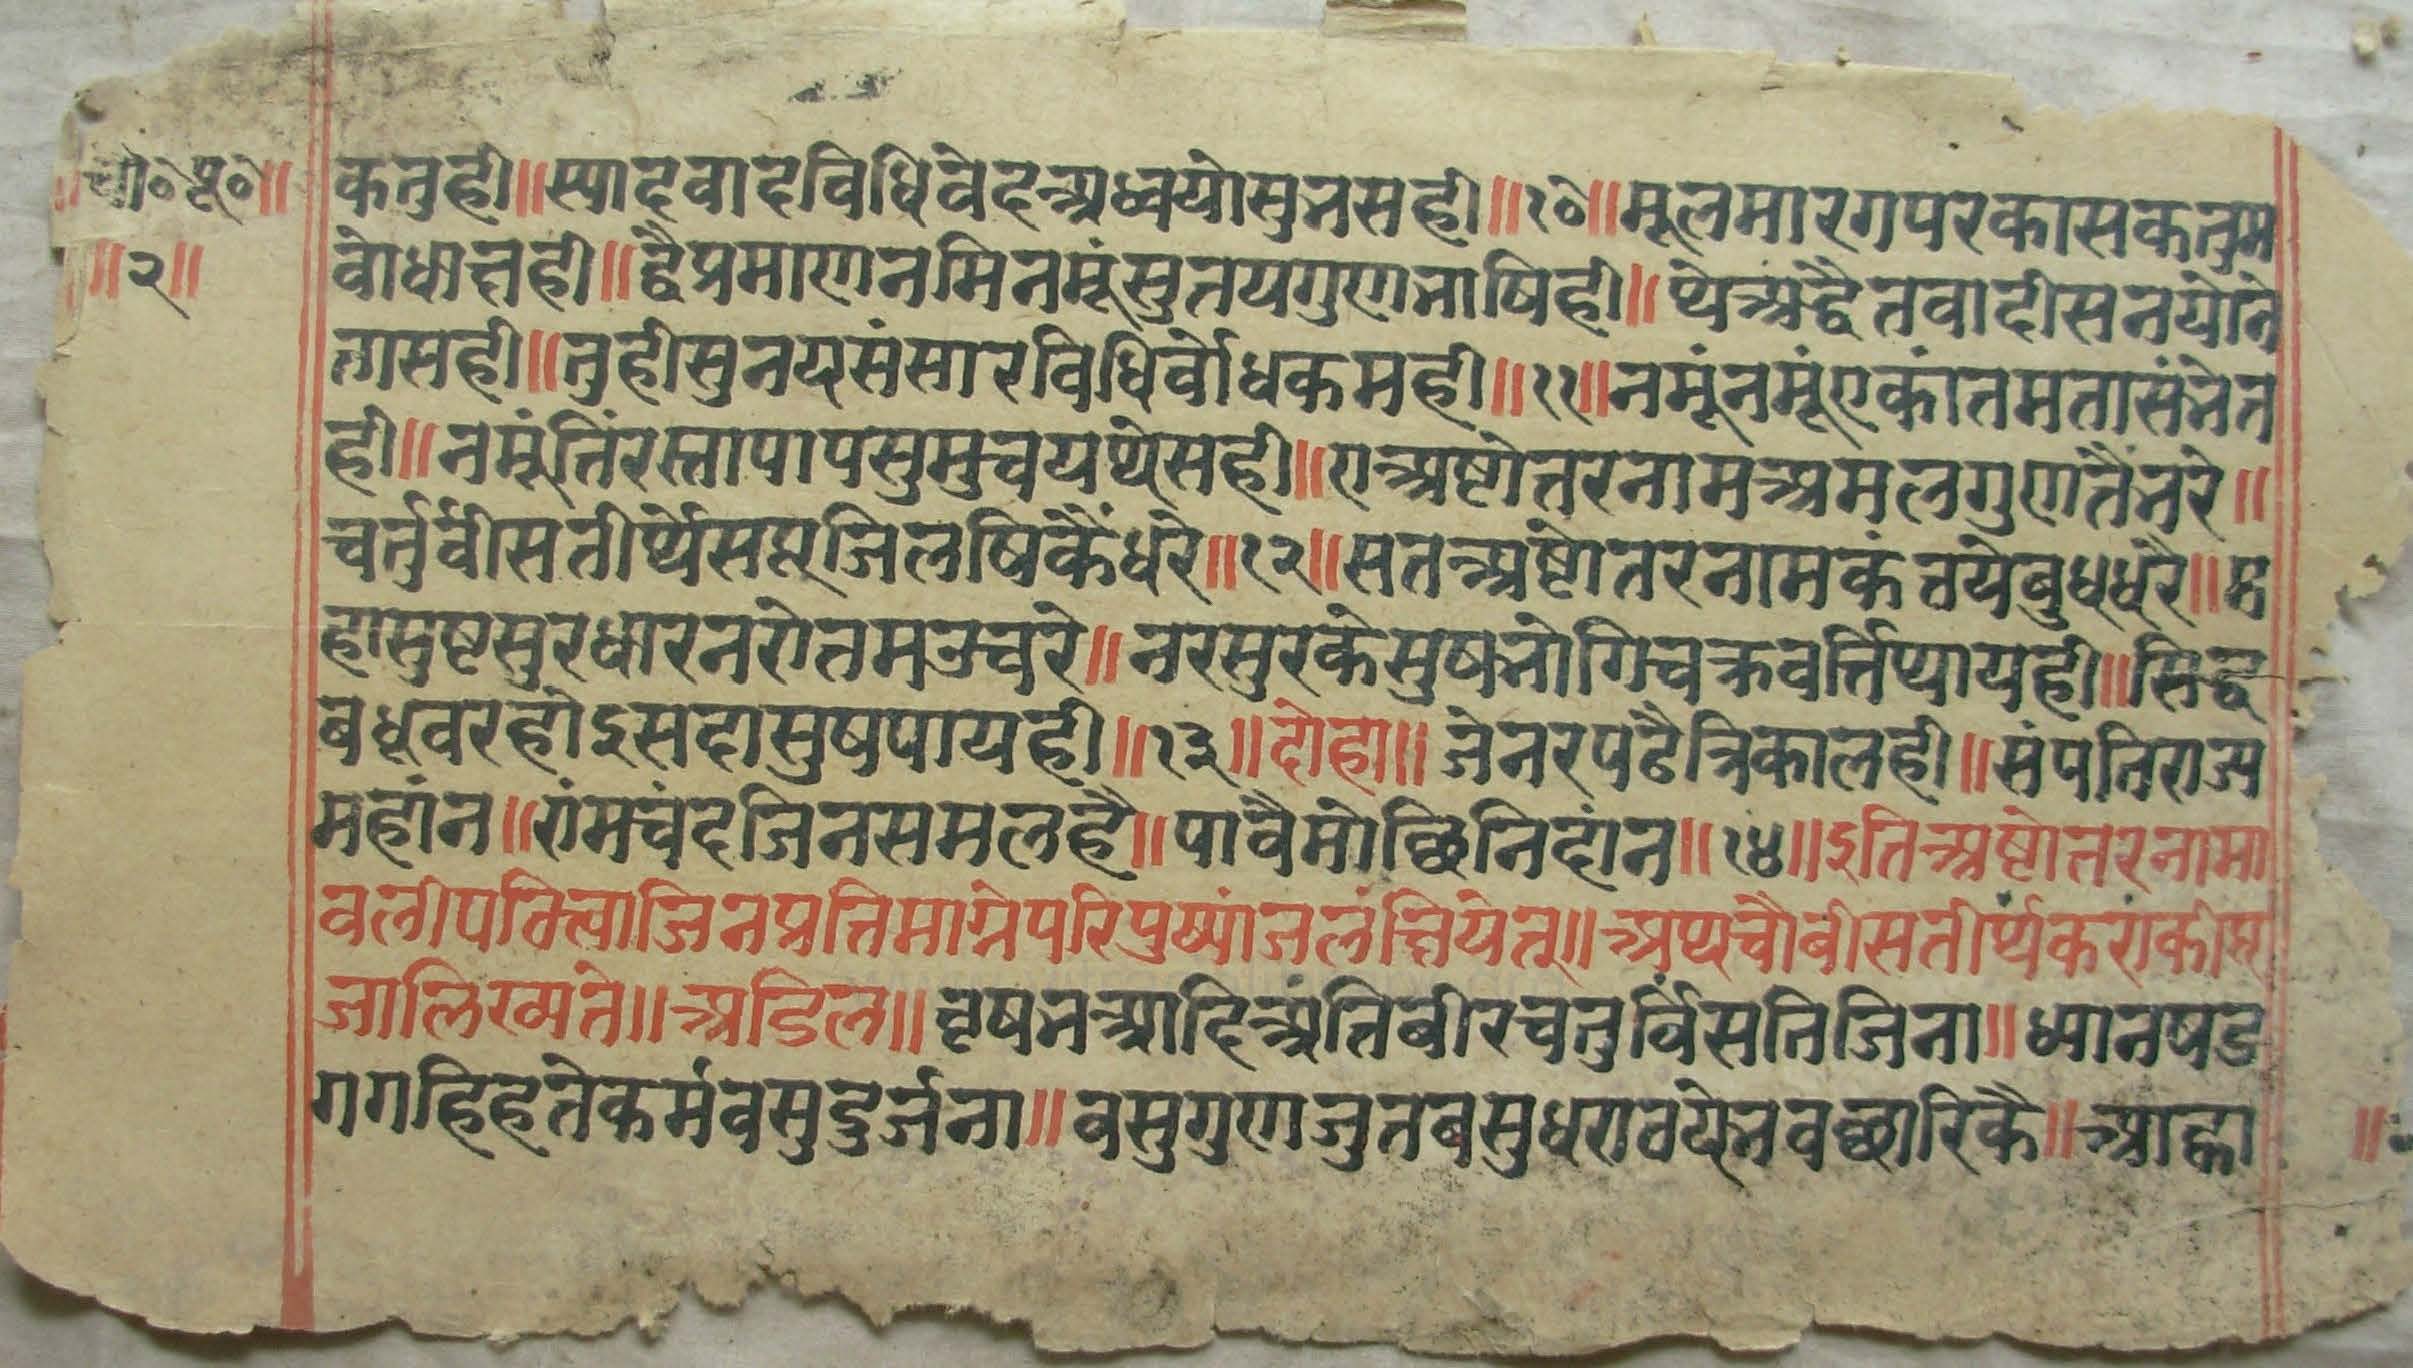 चौ०पू०॥ कतुही॥स्यादवादविधिवेदअध्वयोसुनसही॥१०॥मूलमारगपरकासकतुम
॥२॥ वोधात्तही॥द्वैप्रमाणनमिनमूंसुतयगुणभाषिही॥प्येअद्वैतवादीसनयोते
तासही॥तुहीसुनयसंसारविधिर्वोधकमही॥११॥नमूंनमूंएकांतमतासंनेत
ही॥नमूंत्तिंरस्तापापसुमुचयथेसही॥एअष्टोत्तरनामअमलगुणतैंभरे॥
चर्तुर्वीसतीर्थेसपूजिलषिकैंधरे॥१२॥सतअष्टोतरनामकंठयेबुधधरै॥म
हासुष्टसुरधारनरोतमउचरे॥नरसुरकेसुषभोगिचक्रवर्त्तिप्यायही॥सिद्ध
बधूवरहोइसदासुषपायही॥१३॥दोहा॥जेनरपढैत्रिकालही॥संपतिराज्य
महांन॥रांमचंदजिनसमलहै॥पावैमोछिनिदांन॥१४॥इतिअष्टोतरनामा
वलीपठित्वाजिनप्रतिमाग्रेपरिपुष्पांजलंत्तियेत्॥अथचौबीसतीर्थकरांकीपू
जालिख्यते॥अडिल॥वृषभआदिअंतिबीरचतुर्विंसतिजिना॥ध्यानषड
गगहिहतेकर्मवसुदुर्जना॥वसुगुणजुतबसुधराठयेनवछारिकै॥आह्वा